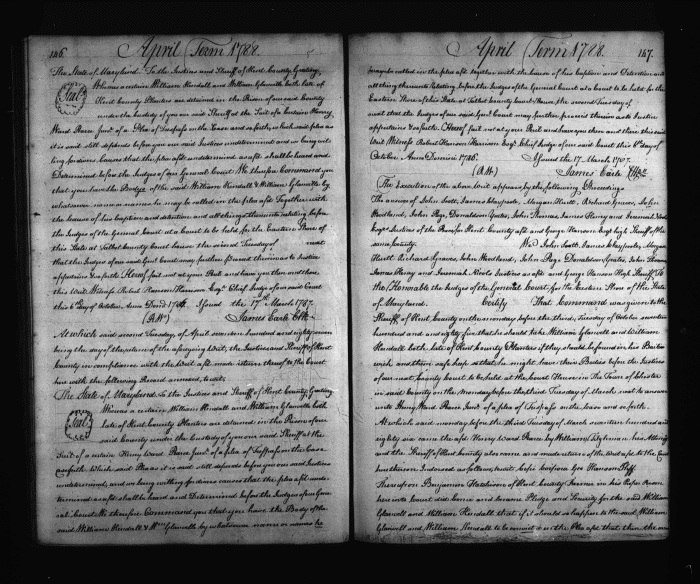 186.
April Term 1788.
The State of Maryland. To the Justices and Sheriff of Kent County Greeting
Whereas a certain William Kendall and William Glanville both late of
Kent County Planters are detained in the Prison of our said County
under the custody of you our said Sheriff at the Suit of a certain Henry
Ward Pearce Junr. of a Plea of Trespass on the Case and so forth, which said plea as
it is said still depends before you our said Justices undetermined and we being wil
ling for divines causes that the plea afsd. undetermined as afsd. shall be heard and
Determined before the Judges of our General Court. We therefore Command you
that you have the Bodys of the said William Kendall & William Glanville by
whatsoever name or names he may be called in the plea afsd. Together with
the causes of his caption and detention and all things thereunto relating before
the Judges of the General Court at a Court to be held for the Eastern Shore of
this State at Talbot County Court house the second Tuesday of next
that the Judges of our said Genl. Court may further proceed thereon as to Justice
appertains & so forth. Hereof fail not at your Peril and have you then and there
this Writ. Witness Robert Hanson Harrison Esqr. Chief Judge of our said Court
this 6th. day of October Anno Domi 1786. Issued the 17th. March 1787.
(A.H.) James Earle Clk.
At which said second Tuesday, of April seventeen hundred and eighty seven
being the day of the return of the aforegoing Writ, the Justices and Sheriff of Kent
County in compliance with the Writ afsd. made return thereof to the Court
here with the following Record annexed, to wit,
The State of Maryland. To the Justices and Sheriff of Kent County, Greeting,
Whereas a certain William Kendall and William Glanville both
late of Kent County Planters are detained in the Prison of our
said County under the Custody of you our said Sheriff at the
Suit of a certain Henry Ward Pearce Junr. of a plea of Trespass on the Case
& so forth which said Plea as it is said still depends before you our said Justices
undetermined, and we being willing for divines causes that the plea afsd. unde
termined as afsd. shall be heard and Determined before the Judges of our Gene
ral Court We therefore Command you that you have the Body of the
said William Kendall & Wm. Glanville by whatsoever name or names he
Seal
Seal
April Term 1788.
187.
may be called in the plea afsd. together with the causes of his caption and Detention and
all things thereunto Relating, before the Judges of the General Court at a Court to be held for the
Eastern Shore of this State at Talbot County Court House, the second Tuesday of
next that the Judges of our said Genl. Court may further proceed thereon as to Justice
appertains & so forth. Hereof fail not at your Peril and have you then and there this said
Writ. Witness Robert Hanson Harrison Esqr. Chief Judge of our said Court this 6th. day of
October Anno Domini 1786. Issued the 17. March 1787.
(A.H.) James Earle Clk.
The Execution of the above Writ appears by the following Proceedings
The answer of John Scott, James Claypoole, Morgan Hurtt, Richard Graves, John
Woodland, John Page, Donaldson Yeates, John Thomas, James Henry and Jeremiah Nicols
Esqrs. Justices of the Peace for Kent County afsd. and George Hanson Esqr. high Sheriff of the
same County. We John Scott, James Claypoole, Morgan
Hurtt Richard Graves, John Woodland, John Page Donaldson Yeates, John Thomas
James Henry and Jeremiah Nicols Justices as afsd. and George Hanson High Sheriff, To
the Honorable the Judges of the General Court for the Eastern Shore of the State
of Maryland. Certify That Command was given to the
Sheriff of Kent County on the monday before the third, Tuesday of October seventeen
hundred and eighty five that he should take William Glanvell and William
Kendall both late of Kent County Planters if they should be found in his Baili
wick and them safe keep so that he might have their Bodies before the Justices
of our next County Court to be held at the Court House in the Town of Chester
in said County on the Monday before the third Tuesday of March next to answer
unto Henry Ward Pearce Junr. of a plea of Trespass on the case and so forth.
At which said monday before the third Tuesday of March seventeen hundred and
eighty six came the afsd. Henry Ward Pearce by William Tilghman his Attorney
and the Sheriff of Kent County also came and made return of the Writ afsd. to the Court
here thereon Indorsed as follows, to wit. Cepi Corpora Geo Hanson Shff.
Thereupon Benjamin Hutchison of Kent County Farmer in his Proper Person
here into Court did come and became Pledge and Security for the said William
Glanvell and William Kendall that if it should so happen to the said William
Glanvell and William Kendall to be convict in the Plea afsd. that then the